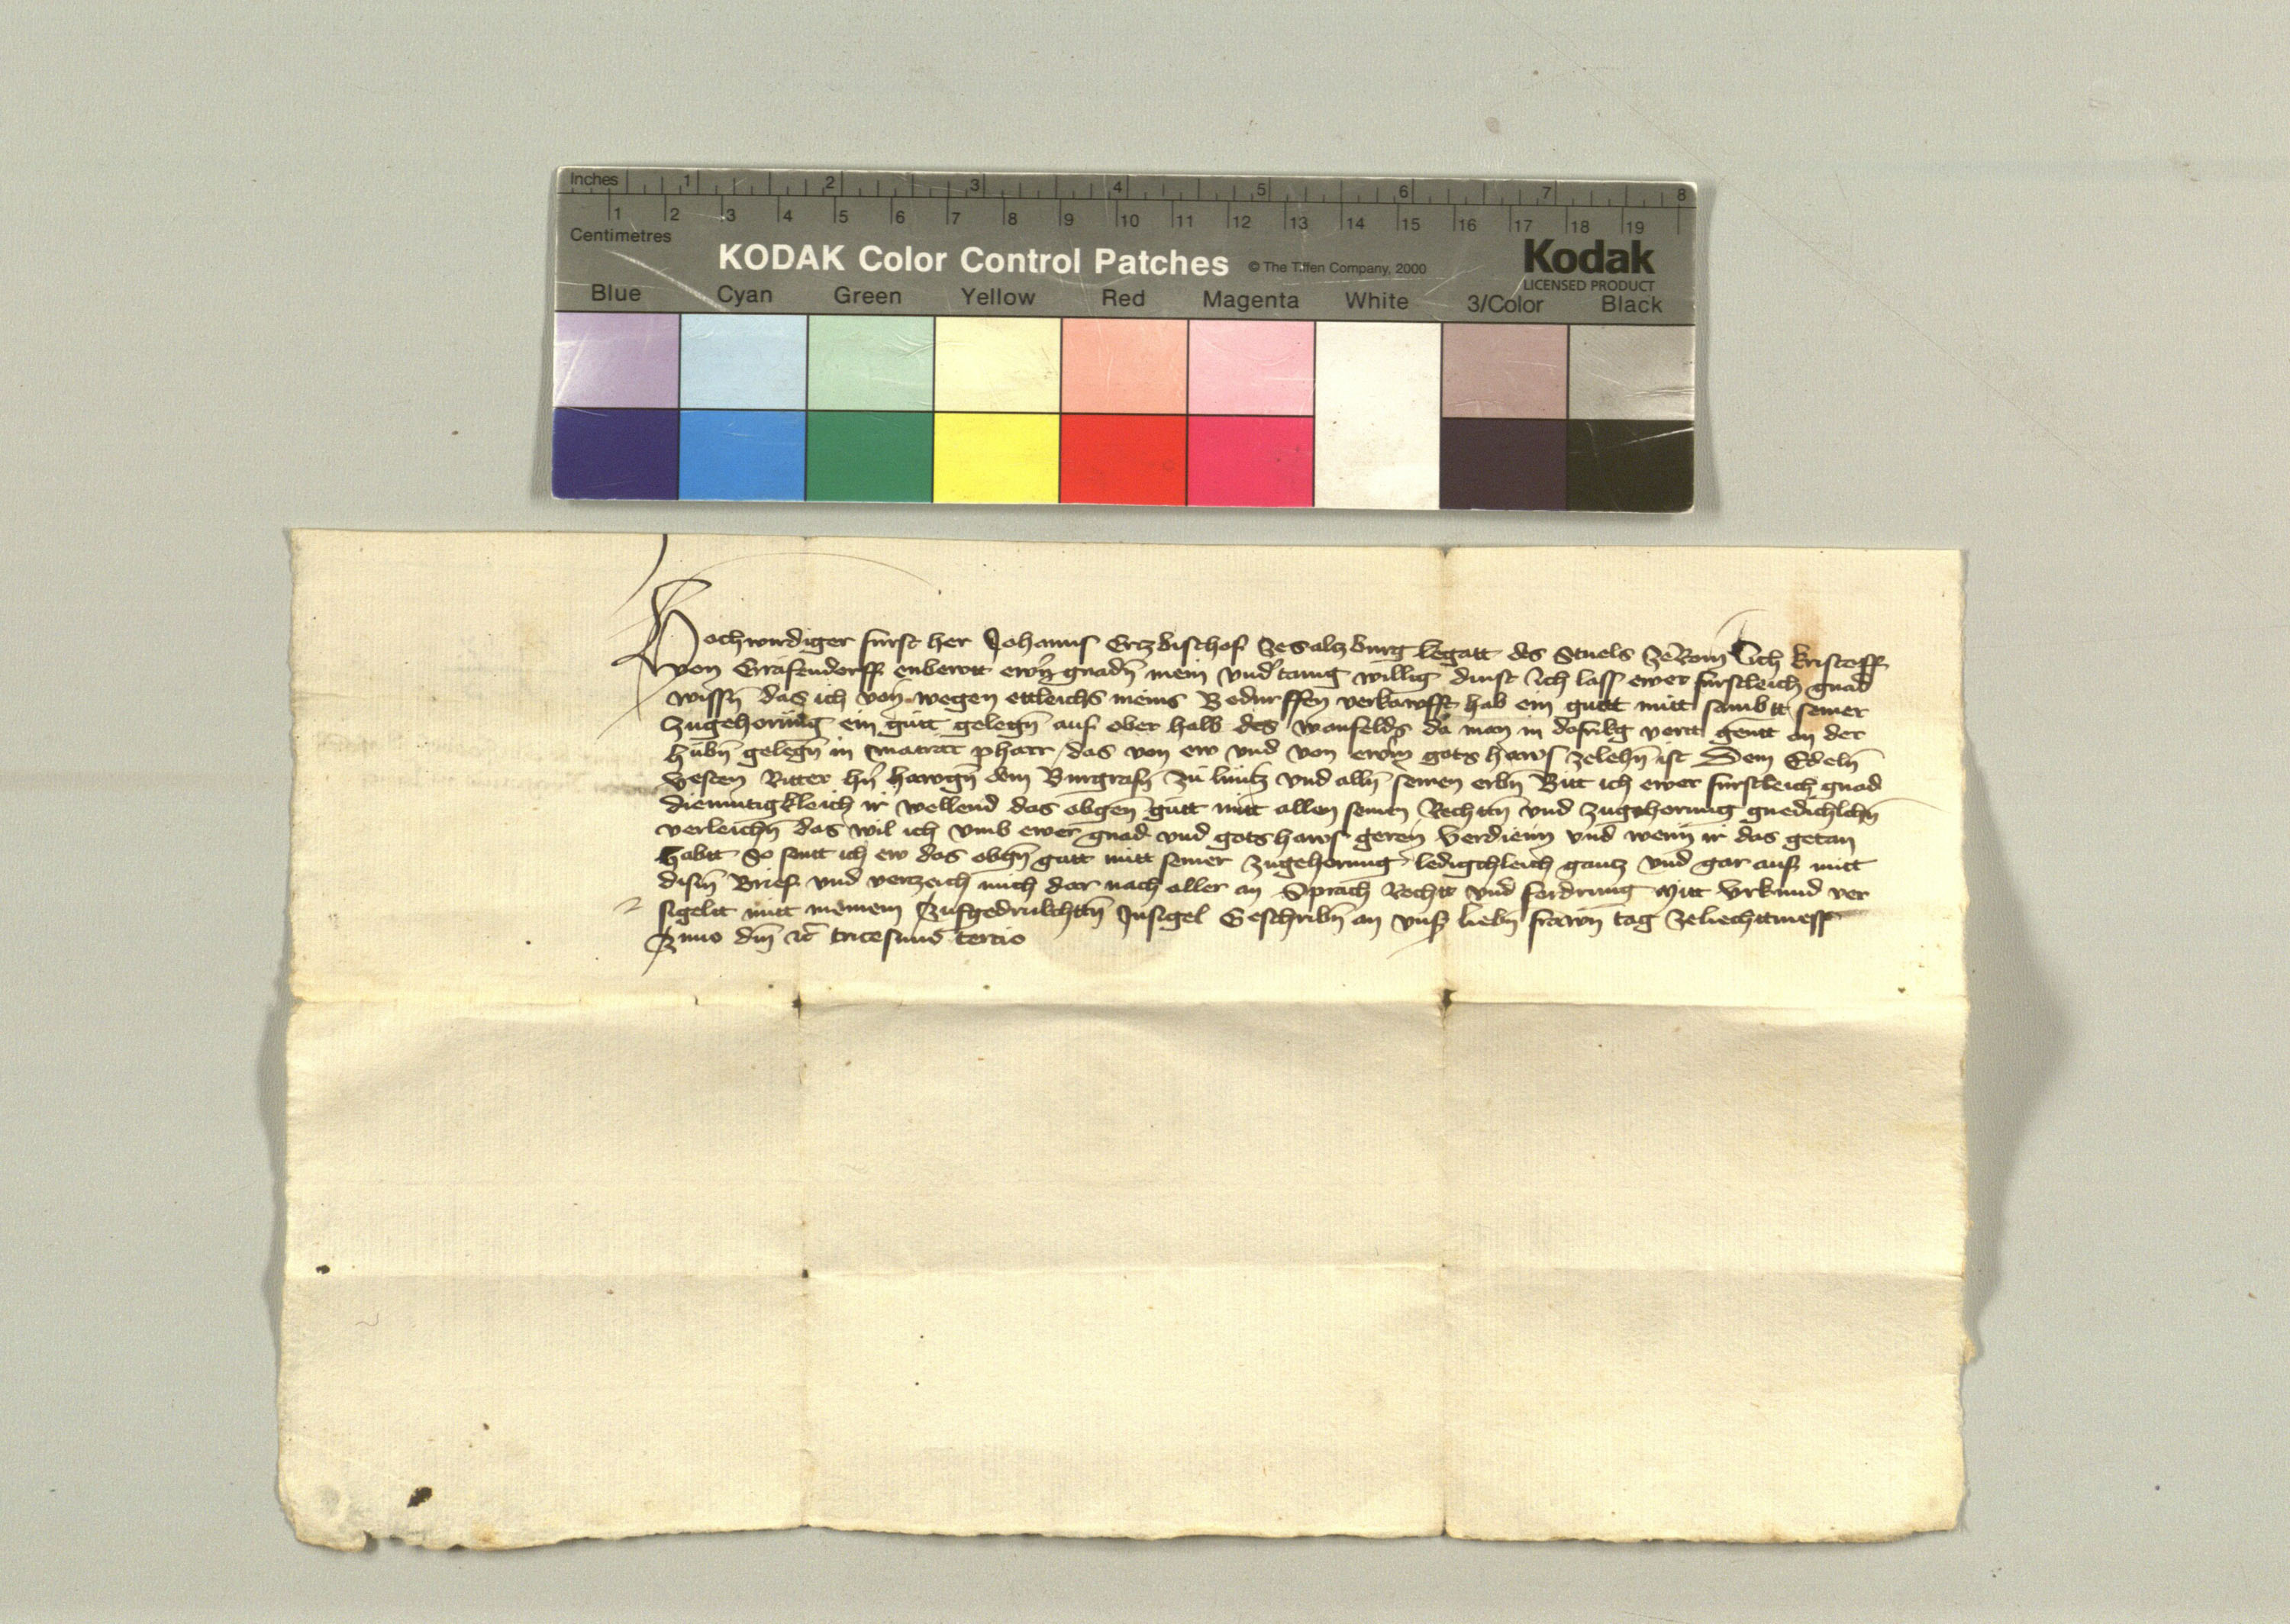 Inches 1 2 3 4 5 6 7 8
1 2 3 4 5 6 7 8 9 10 11 12 13 14 15 16 17 18 19
Centimetres
KODAK Color Control Patches © The Tiffen Company, 2000 Kodak
LICENSED PRODUCT
Blue Cyan Green Yellow Red Magenta White 3/Color Black
Hochwirdiger furst her Johanns Ertzbischof ze Saltzburg legatt des Stuels ze Rom Ich kristoff
von Grafendorff enbewtt ewrn gnadn mein vndtanig willig dinst Ich lass ewer furstleich gnad
wissn das ich von wegen ettleichs meins Bedurffen verkawfft hab ein guett mitt sambtt seiner
Zugehorung ein gutt gelegn auf ober halb des da man in vertt gentt an der
hubn gelegn in Matrar pharr / das von ew vnd von ewrm gots haws zelehn ist Dem Edeln
vesten Ritter hrn hawgn dem Burgrafn zu luntz vnd alln seinen erbn Bitt ich ewer furstleich gnad
diemutigkleich ir wellend das obgen gutt mitt allen seinen Rechttn vnd zugehorung
verleichn das wil ich vmb ewer gnad vnd gots haws geren verdienn vnd wenn ir das getan
habtt So sentt ich ew das obgn gutt mitt seiner zugehorung ledigchleich gantz vnd gar auf mitt
dism Brief vnd verzeich mich dar nach aller an Sprach Rechtt vnd fordrung Mitt Vrkund ver
sigelt mitt meinem Aufgedrukchttn Insigel Geschribn an vnser liebn frawn tag zeliechttmess
Anno dm etc tricesimo tercio